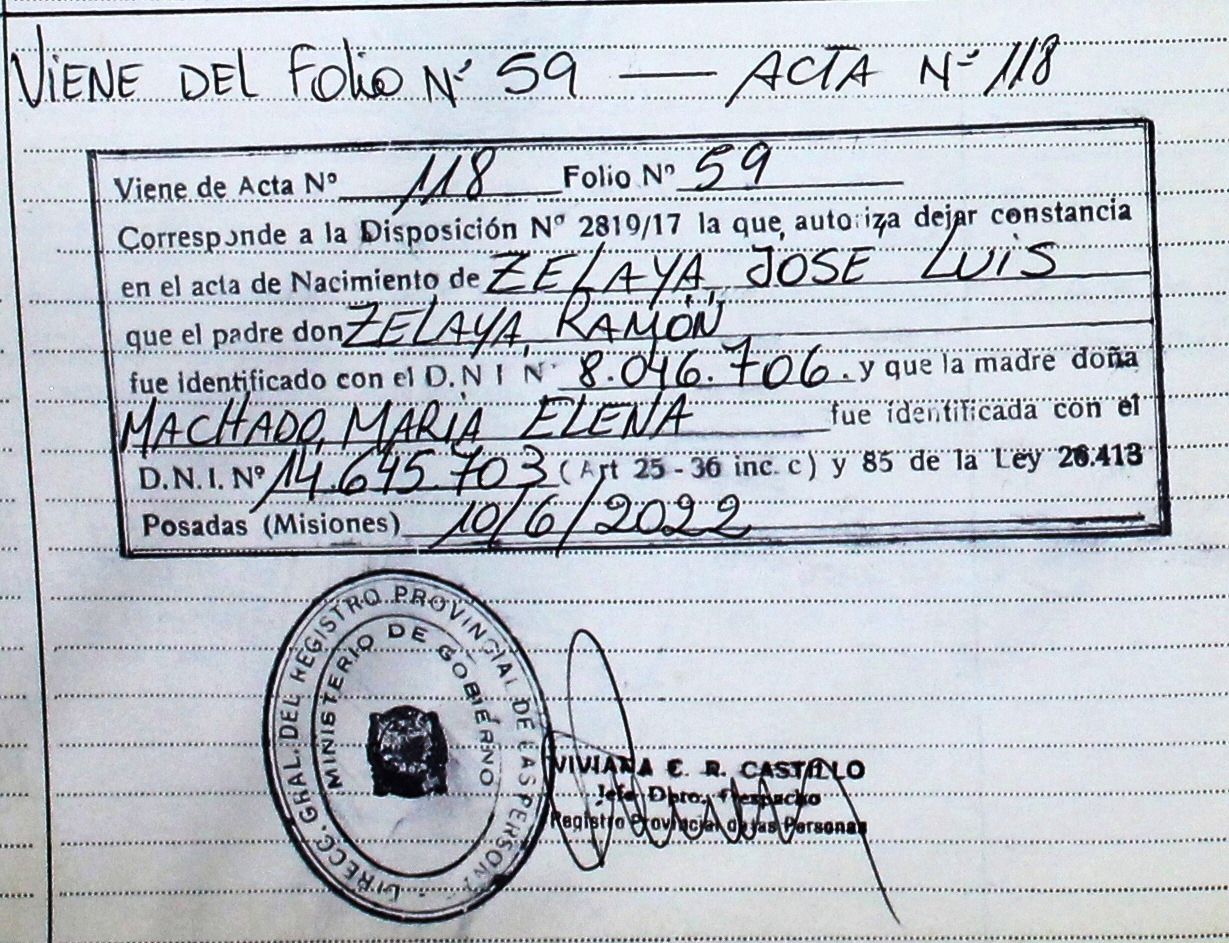 VIENE DEL FOLIO Nº 59 — ACTA Nº 118
Viene de Acta Nº 118 Folio Nº 59
Corresponde a la Disposición Nº 2819/17 la que, autoriza dejar constancia
en el acta de Nacimiento de ZELAYA, JOSE LUIS
que el padre don ZELAYA, RAMÓN
fue identificado con el D.N I Nº 8.046.706. y que la madre doña
MACHADO, MARIA ELENA fue identificada con el
D.N.I. Nº 14.645.703 (Art 25 - 36 inc. c) y 85 de la Ley 26.413
Posadas (Misiones) 10/6/2022
DIRECC. GRAL. DEL REGISTRO PROVINCIAL DE LAS PERSON
MINISTERIO DE GOBIERNO
VIVIANA E. R. CASTILLO
Jefe Dpto. Despacho
Registro Provincial de las Personas